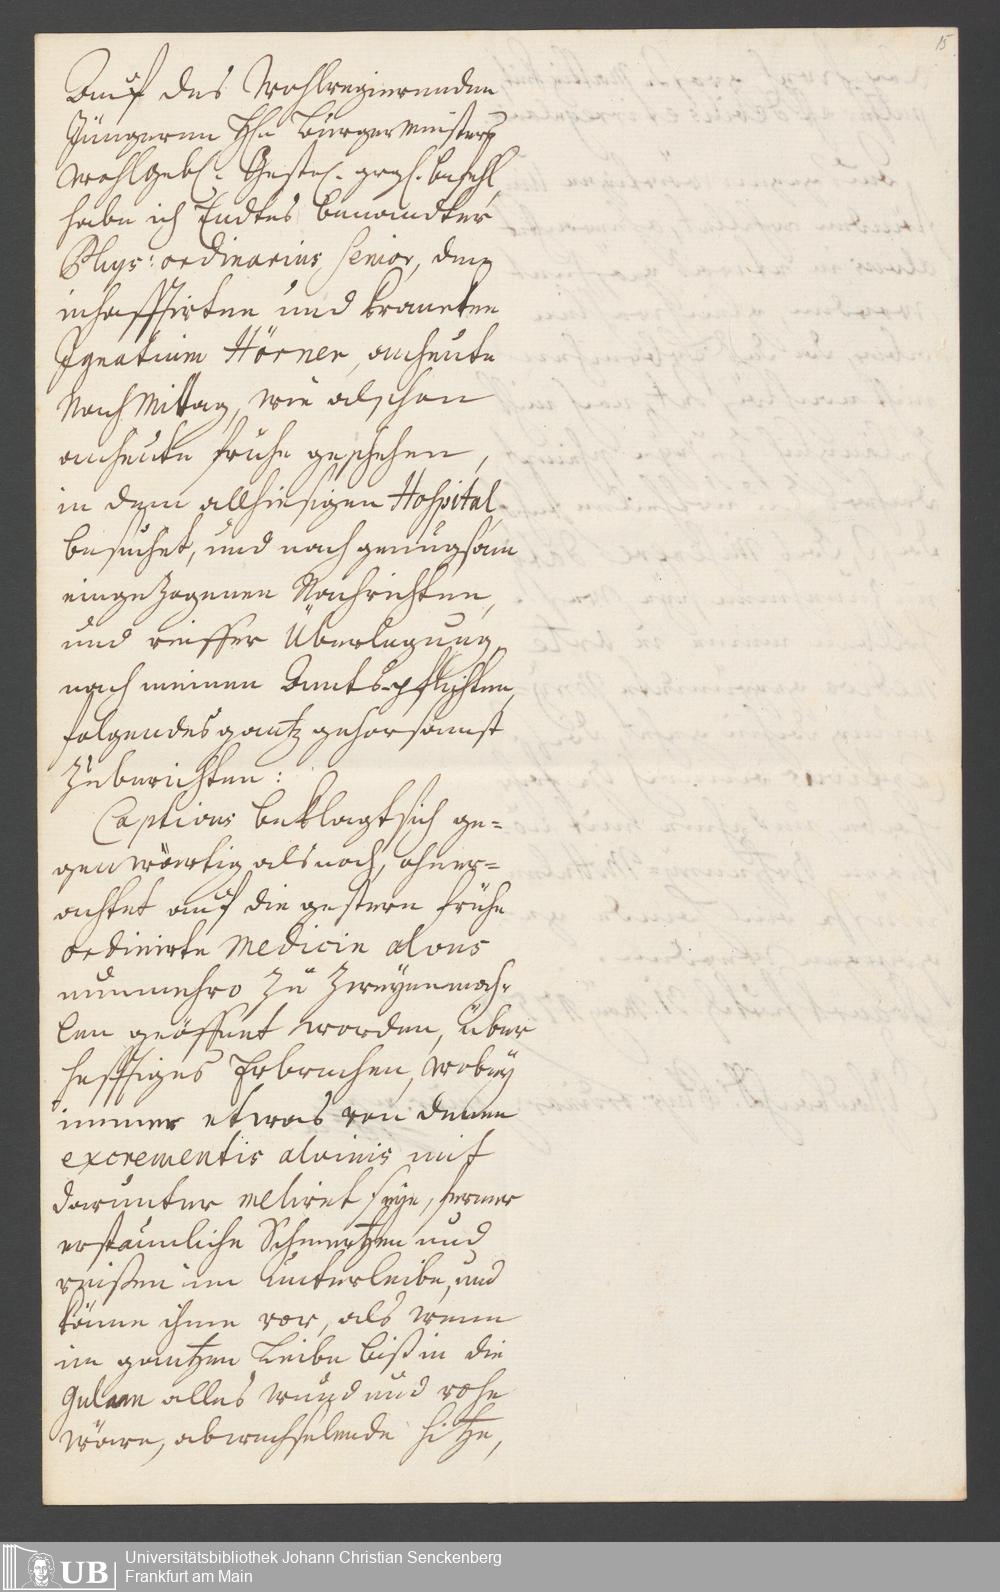 15
Auf des Wohlregierenden
Jüngeren Hn Bürgermeisters
WohlGebl. Gestrl. grgl. befehl
habe ich Endtes benandter
Phys: ordinarius senior, den
inhafftirten und krancken
Ignatium Hörner, anheute
Nach Mittag, wie alschon
anheute fruhe geschehen,
in dem allhiesigen Hospital,
besuchet, und nach genugsam
eingezogenen Nachrichten,
und reiffer Überlegung,
nach meinen Amts-pflichten,
folgendes gantz gehorsamst
zu berichten:
Captivus beklagt sich ge=
genwärtig alsnoch, ohner=
achtet auf die gestern frühe
ordinirte Medicin alvus
nunmehro zu zweyenmah-
len geöffnet worden, über
hefftiges Erbrechen, wobey
immer etwas von denen
excrementis alvinis mit
darunter meliret seye, ferner
erstaunliche Schmertzen und
reißen im Unterleibe, und
käme ihme vor, als wenn
im gantzen Leibe biß in die
Gulam alles wund und rohe
wäre, abwechselende hitze,
UB
Universitätsbibliothek Johann Christian Senckenberg
Frankfurt am Main